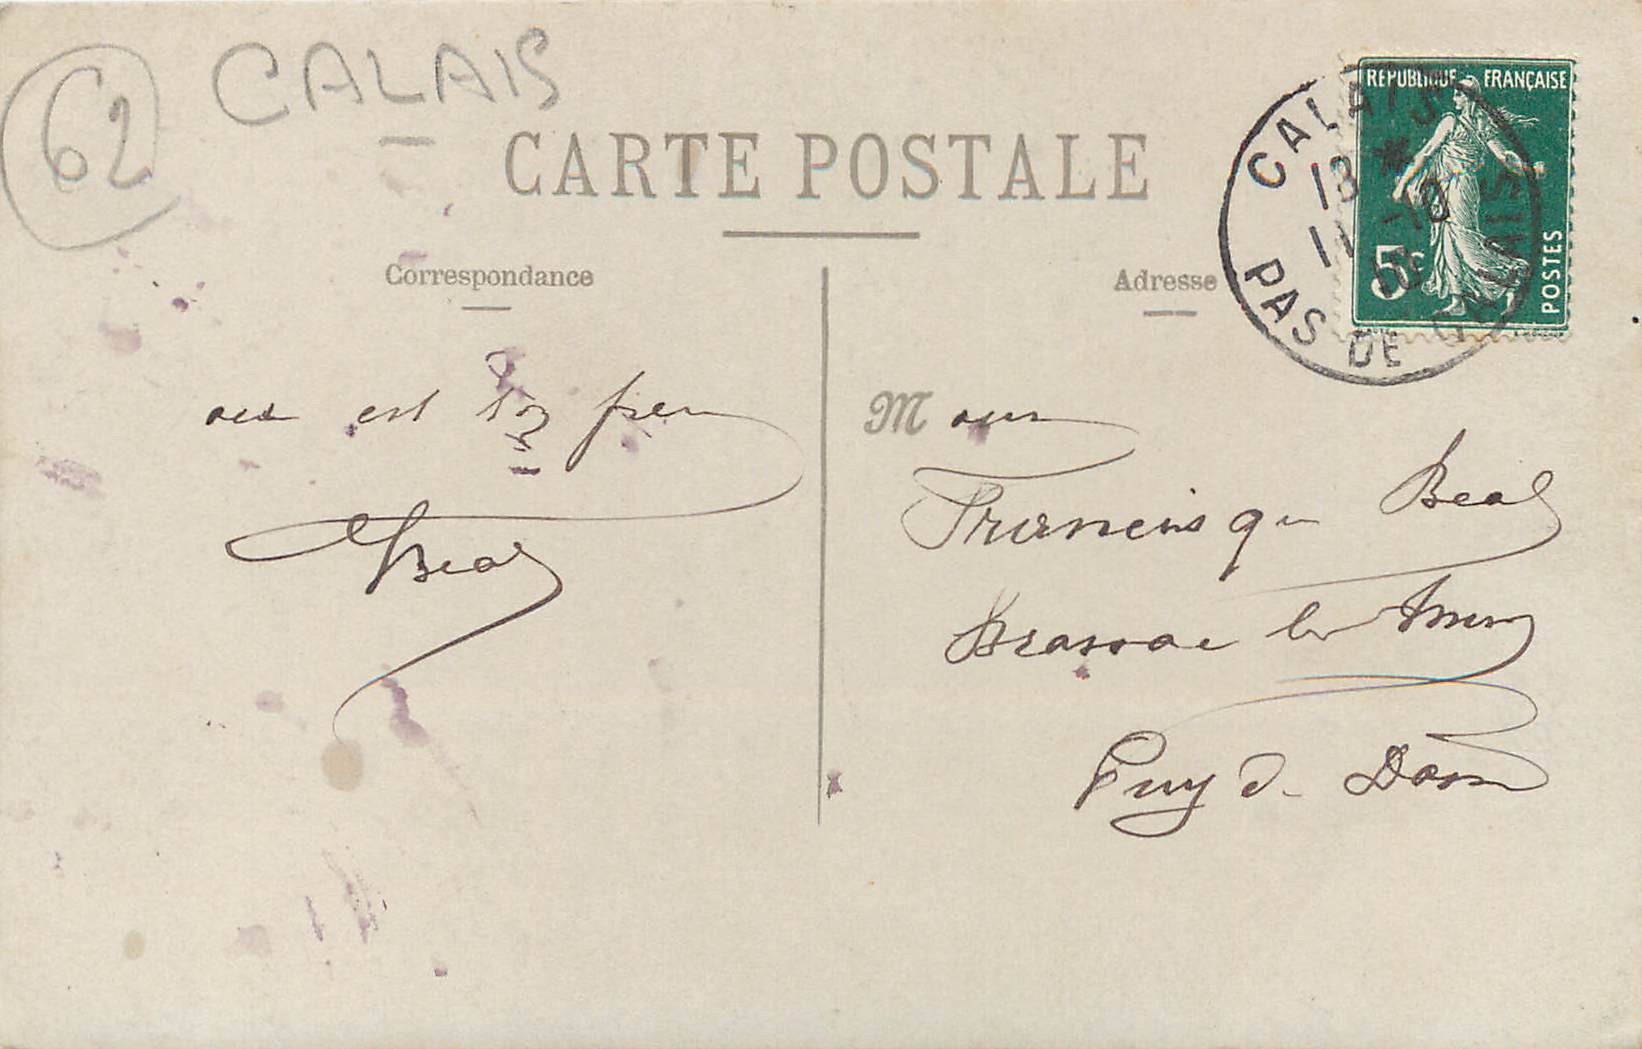 62 CALAIS
CARTE POSTALE
Correspondance
Adresse
RÉPUBLIQUE FRANÇAISE
5c
POSTES
CALAIS
13 *
11 -10
PAS DE CALAIS
est
Beal
M
Francisque Beal
Brassac les Mines
Puy d. Dome